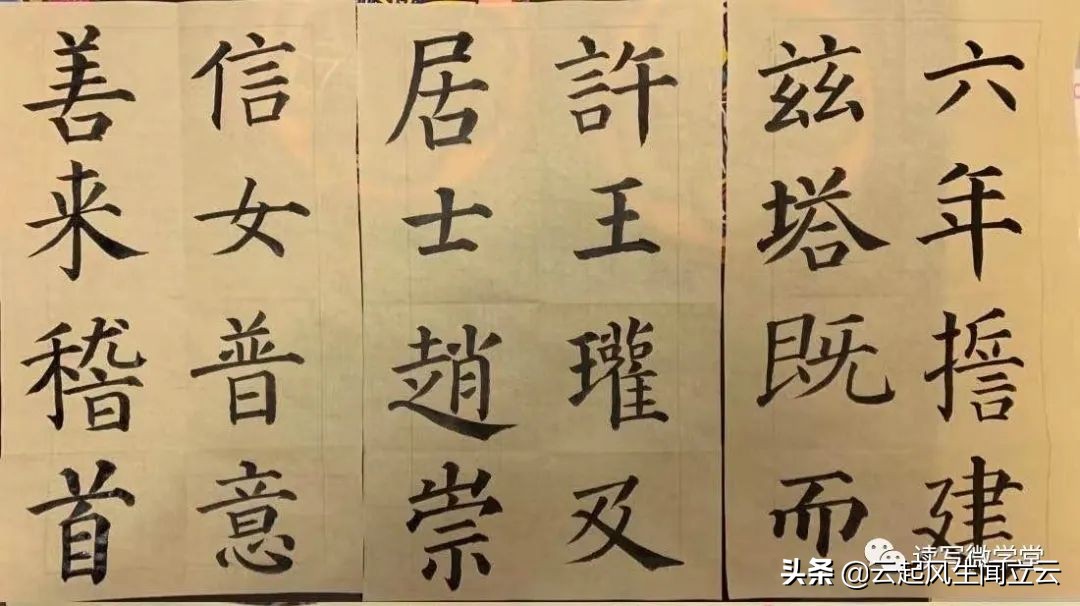 六年誓建
兹塔既而
許王瓘及
居士趙崇
信女普意
善来稽首
读写微学堂
头条 @云起风生闻立云